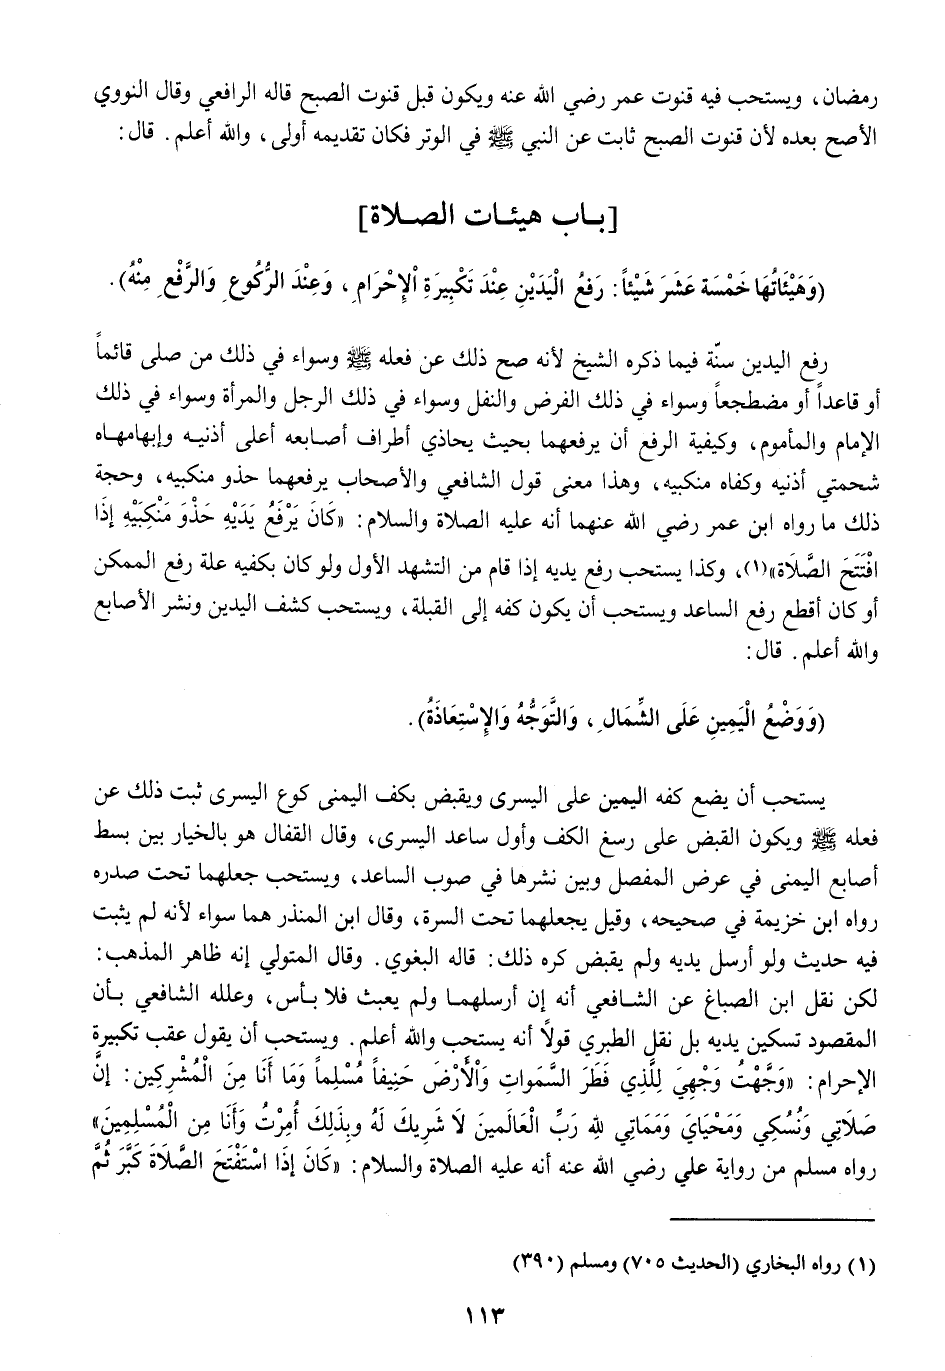 رمضان، ويستحب فيه قنوت عمر رضي الله عنه ويكون قبل قنوت الصبح قاله الرافعي وقال النووي
الأصح بعده لأن قنوت الصبح ثابت عن النبي ﷺ في الوتر فكان تقديمه أولى، والله أعلم. قال:
[باب هيئات الصلاة]
(وَهَيْئَاتُهَا خَمْسَة عَشَرَ شَيْئاً: رَفعُ الْيَدَيْنِ عِنْدَ تَكْبِيرَةِ الإِحْرَامِ، وَعِنْدَ الرُّكُوعِ وَالرَّفْعِ مِنْهُ).
رفع اليدين سنّة فيما ذكره الشيخ لأنه صح ذلك عن فعله ﷺ وسواء في ذلك من صلى قائماً
أو قاعداً أو مضطجعاً وسواء في ذلك الفرض والنفل وسواء في ذلك الرجل والمرأة وسواء في ذلك
الإمام والمأموم، وكيفية الرفع أن يرفعهما بحيث يحاذي أطراف أصابعه أعلى أذنيه وإبهامهاه
شحمتي أذنيه وكفاه منكبيه، وهذا معنى قول الشافعي والأصحاب يرفعهما حذو منكبيه، وحجة
ذلك ما رواه ابن عمر رضي الله عنهما أنه عليه الصلاة والسلام: «كَانَ يَرْفَعُ يَدَيْهِ حَذْوَ مَنْكِبَيْهِ إذَا
افْتَتَحَ الصَّلَاة»(١)، وكذا يستحب رفع يديه إذا قام من التشهد الأول ولو كان بكفيه علة رفع الممكن
أو كان أقطع رفع الساعد ويستحب أن يكون كفه إلى القبلة، ويستحب كشف اليدين ونشر الأصابع
والله أعلم. قال:
(وَوَضْعُ الْيَمِينِ عَلَى الشِّمَالِ، وَالتَّوَجُّهُ وَالإِسْتِعَاذَةُ).
يستحب أن يضع كفه اليمين على اليسرى ويقبض بكف اليمنى كوع اليسرى ثبت ذلك عن
فعله ﷺ ويكون القبض على رسغ الكف وأول ساعد اليسرى، وقال القفال هو بالخيار بين بسط
أصابع اليمنى في عرض المفصل وبين نشرها في صوب الساعد، ويستحب جعلهما تحت صدره
رواه ابن خزيمة في صحيحه، وقيل يجعلهما تحت السرة، وقال ابن المنذر هما سواء لأنه لم يثبت
فيه حديث ولو أرسل يديه ولم يقبض كره ذلك: قاله البغوي. وقال المتولي إنه ظاهر المذهب:
لكن نقل ابن الصباغ عن الشافعي أنه إن أرسلهما ولم يعبث فلا بأس، وعلله الشافعي بأن
المقصود تسكين يديه بل نقل الطبري قولاً أنه يستحب والله أعلم. ويستحب أن يقول عقب تكبيرة
الإحرام: «وَجَّهْتُ وَجْهِيَ لِلَّذِي فَطَرَ السَّمَواتِ وَالْأَرْضَ حَنِيفاً مُسْلِماً وَمَا أَنَا مِنَ الْمُشْرِكِين: إنَّ
صَلَاتِي وَنُسُكِي وَمَحْيَايَ وَمَمَاتِي لِلهِ رَبِّ الْعَالَمينَ لاَ شَرِيكَ لَهُ وبِذَلِكَ أُمِرْتُ وَأَنَا مِن الْمُسْلِمِينَ»
رواه مسلم من رواية علي رضي الله عنه أنه عليه الصلاة والسلام: «كَانَ إذَا اسْتَفْتَحَ الصَّلَاةَ كَبَّرَ ثُمَّ
(١) رواه البخاري (الحديث ٧٠٥) ومسلم (٣٩٠)
١١٣